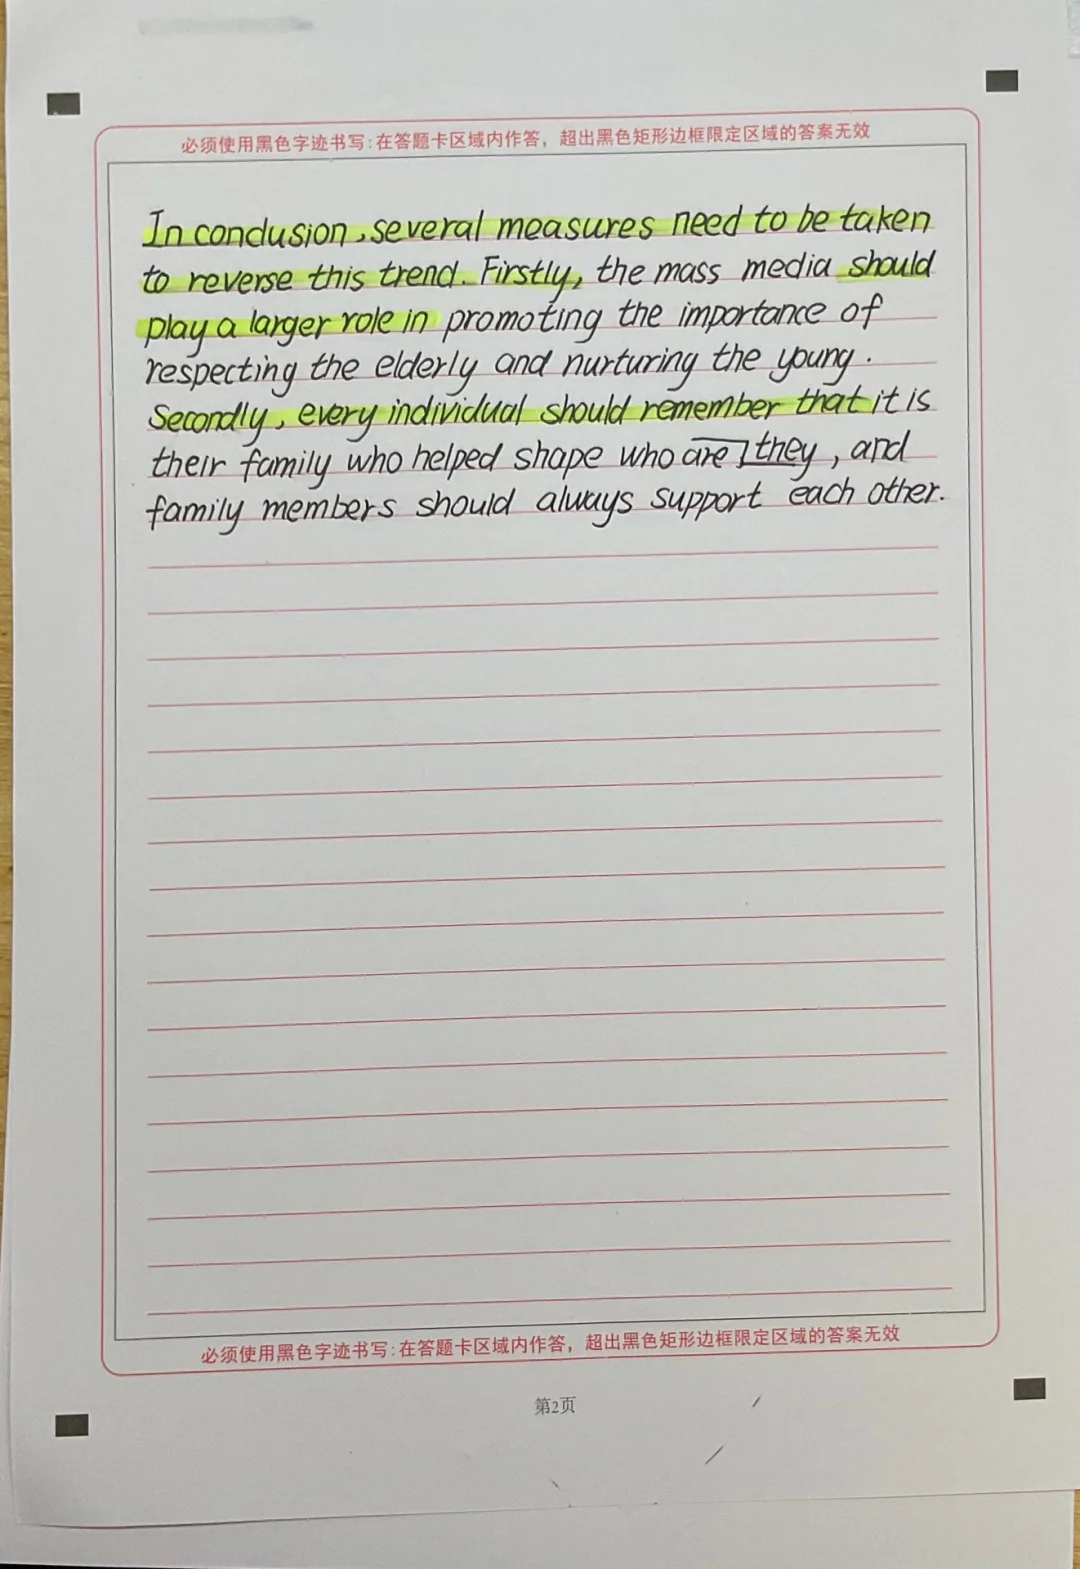 必须使用黑色字迹书写:在答题卡区域内作答，超出黑色矩形边框限定区域的答案无效
In conclusion, several measures need to be taken
to reverse this trend. Firstly, the mass media should
play a larger role in promoting the importance of
respecting the elderly and nurturing the young.
Secondly, every individual should remember that it is
their family who helped shape who are they, and
family members should always support each other.
必须使用黑色字迹书写:在答题卡区域内作答，超出黑色矩形边框限定区域的答案无效
第2页